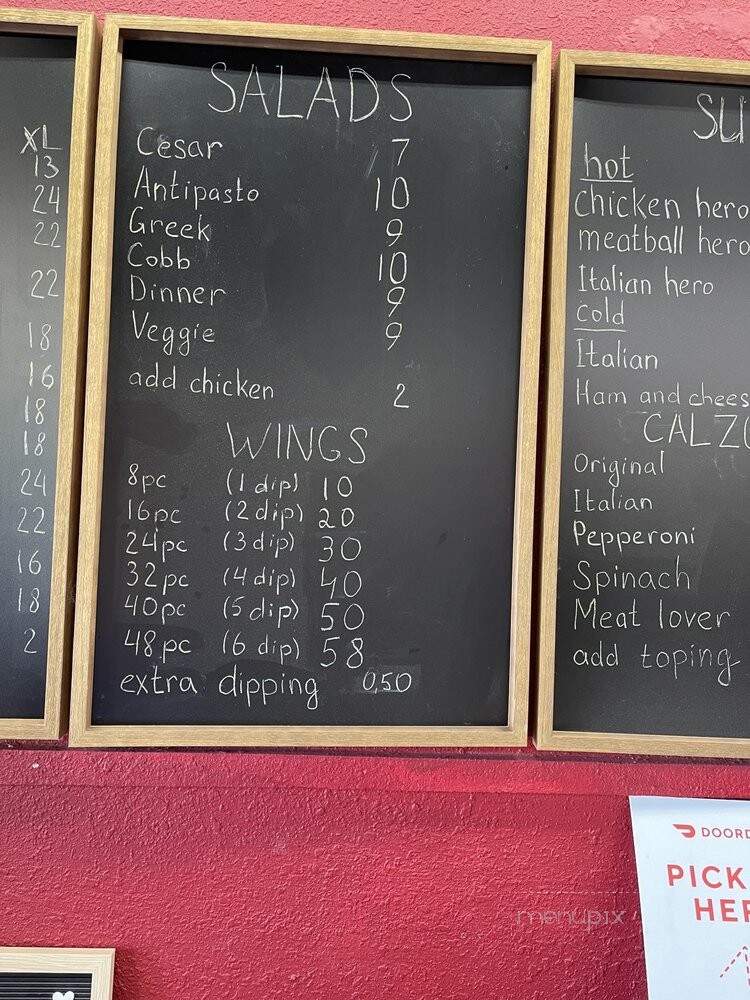 XL
13
24
22
22
18
16
18
18
24
22
16
18
2
SALADS
Cesar 7
Antipasto 10
Greek 9
Cobb 10
Dinner 9
Veggie 9
add chicken 2
WINGS
8pc (1 dip) 10
16pc (2 dip) 20
24pc (3 dip) 30
32pc (4 dip) 40
40pc (5 dip) 50
48pc (6 dip) 58
extra dipping 0,50
hot
chicken hero
meatball hero
Italian hero
cold
Italian
Ham and chees
CALZO
Original
Italian
Pepperoni
Spinach
Meat lover
add toping
DOORD
PICK
HER
menupix